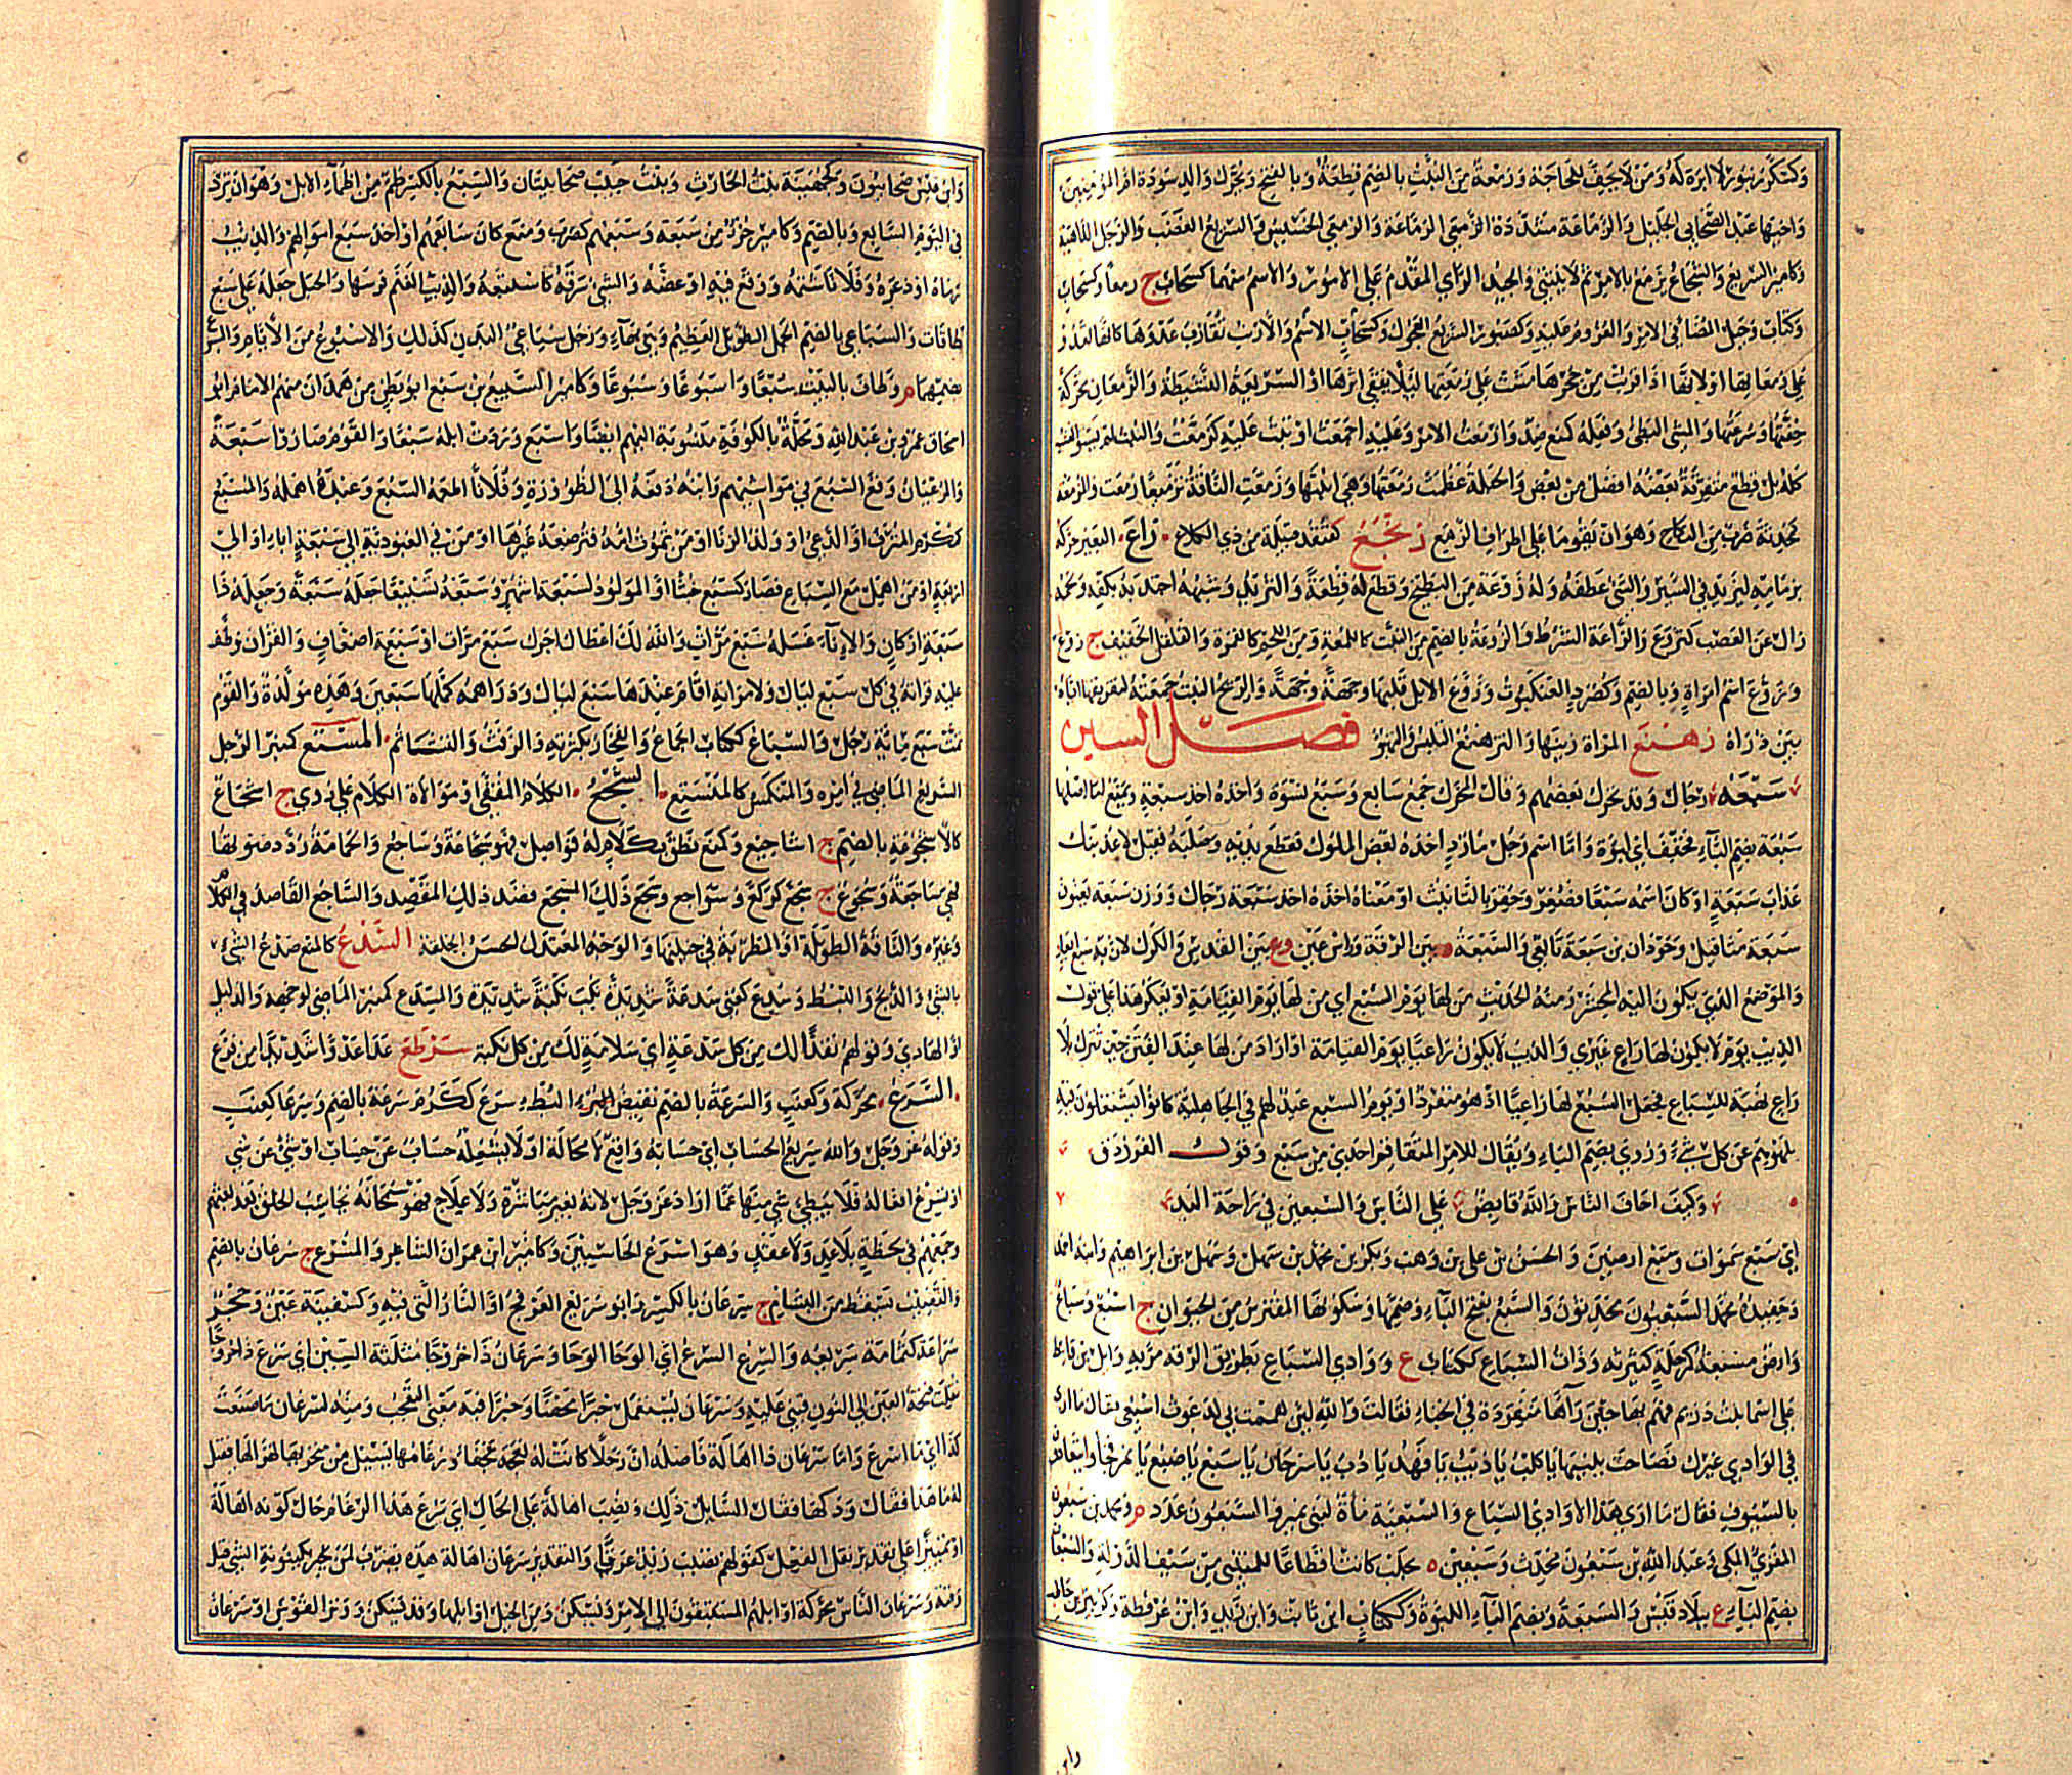 وكشكور نبور لا ابرة له ومن لا يخف للحاجة وزمعة من النبت بالضم قطعة وبالفتح ويحرك والد سودة ام المؤمنين
واخيها عبد الصحابي الجليل والزماعة مشددة الزمعي والزمعي الخسيس والسريع الغضب والرجل الداهية
وكامير السريع والشجاع يزمع بالامر ثم لا ينثني والجيد الراي المقدم على الامور والاسم منهما كسحاب ج زمعا وكسحاب
وكتاب وجل المضا في الامر والعزوم عليه وكصبور السريع العجول وكسحاب الاسم والارنب تقارب عدوها كانها تعدو
على زمعاتها او لانها اذا قربت من جحرها مشت على زمعتها ليلا يقتفى اثرها او السريعة النشيطة والزمعان محركة
خفتها وسرعتها والمشي البطئ وفعله كمنع ضد وازمعت الامر وعليه اجمعت او ثبت عليه كزمعت والنبت لم يستو العشب
كله بل قطع متفرقة بعضه افضل من بعض والحبلة عظمت زمعتها وهي ابنتها وزمعت الناقة تزميعا رمعت والمزمعة
كمحدثة ضرب من النكاح وهو ان يقوما على اطراف الزمع زنجع كقنفذ قبيلة من ذي الكلاع زاع البعير حركه
بزمامه ليزيد في السير والشئ عطفه وله زوعة من البطيخ وقطع له قطعة والثريد وشبهه اجتذبه بكفه ولحمه
زال عن العصب كتزوع والزاعة الشرط والزوعة بالضم من النبت كاللمعة ومن اللحم كالقمزة والقلقل الخفيف ج زوع
وتزوع اسم امراة وبالضم وكصرد العنكبوت وزوع الابل قلبها وجهة وجهة والريح النبت جمعته لتفريقها اياه
بين ذراه زهنع المراة زينها والتزهنع التلبس والتهيؤ فصل السين
سبعة رجال وقد يحرك بعضهم وقال المحرك جمع سابع وسبع نسوة واخذه اخذ سبعة ويمنع اما اصلها
سبعة بضم الباء فخفف اي لبؤة واما اسم رجل مارد اخذه بعض الملوك فقطع يديه وصلبه فقيل لاعذبنك
عذاب سبعة او كان اسمه سبعا فصغر وحقر بالتانيث او معناه اخذه اخذ سبعة رجال ووزن سبعة يعنون
سبعة مثاقيل وجوذان بن سبعة تابعي والسبعة ة بين الرقة وراس عين وع بين القدس والكرك لان به سبع ابار
والموضع الذي يكون اليه المحشر ومنه الحديث من لها يوم السبع اي من لها يوم القيامة او يعكر هذا على قول
الذيب يوم لا يكون لها راع غيري والذيب لا يكون راعيا يوم القيامة او اراد من لها عند الفتن حين تترك بلا
راع نهبة للسباع فجعل السبع لها راعيا اذ هو منفرد او يوم السبع عيد لهم في الجاهلية كانوا يشتغلون فيه
بلهوهم عن كل شئ وروي بضم الباء ويقال للامر المتفاقم احدى من سبع وقول الفرزدق
وكيف اخاف الناس والله قابض على الناس والسبعين في راحة اليد
اي سبع سموات وسبع ارضين والحسن بن علي بن وهب وبكر بن محمد بن سهل وسهل بن ابراهيم وابنه احمد
وحفيده محمد السبعيون محدثون والسبع بفتح الباء وضمها وسكونها المفترس من الحيوان ج اسبع وسباع
وارض مسبعة كمرحلة كثيرته وذات السباع ككتاب ع ووادي السباع بطريق الرقة مر به وايل بن قاسط
على اسما بنت دريم فهم بها حين رآها منفردة في الخباء فقالت والله لئن هممت بي لدعوت اسبعي فقال ما ارى
في الوادي غيرك فصاحت ببنيها يا كلب يا ذيب يا فهد يا دب يا سرحان يا سبع يا ضبع يا نمر فجاوا يتعادون
بالسيوف فقال ما ارى هذا الا وادي السباع والسبعية ماة لبني نمير والسبعون عدد م ومحمد بن سبعون
المقرئ المكي وعبد الله بن سبعون محدث وسبعين ة بحلب كانت اقطاعا للمتنبي من سيف الدولة والسبعان
بضم الباء ع ببلاد قيس والسبعة وبضم الباء اللبوة وككتاب ابن ثابت وابن زيد وابن عرفطة وكزبير بن خالد
واين
وابن قيس صحابيون وكجهينة بنت الحارث وبنت حبيب صحابيتان والسبع بالكسر ظمء من اظماء الابل وهو ان ترد
في اليوم السابع وبالضم وكامير جزء من سبعة وسبعهم كضرب ومنع كان سابعهم او اخذ سبع اموالهم والذيب
رماه او ذعره وفلانا شتمه ووقع فيه او عضه والشئ سرقه كاستبعه والذيب الغنم فرسها والحبل جعله على سبع
طاقات والسباعي بالضم الجمل الطويل العظيم وهي بهاء ورجل سباعي البدن كذلك والاسبوع من الايام والسبوع
بضمهما م وطاف بالبيت سبعا واسبوعا وسبوعا وكامير السبيع بن سبع ابو بطن من همدان منهم الامام ابو
اسحاق عمرو بن عبد الله ومحلة بالكوفة منسوبة اليهم ايضا واسبع وردت ابله سبعا والقوم صاروا سبعة
والرعيان وقع السبع في مواشيهم وابنه دفعه الى الظؤورة وفلانا اطعمه السبع وعبده اهمله والمسبع
كمكرم المترف او الدعي او ولد الزنا او من تموت امه فترضعه غيرها او من في العبودية الى سبعة اباء او الى
اربعة او من اهمل مع السباع فصار كسبع خبثا او المولود لسبعة اشهر وسبعه تسبيعا جعله سبعة وجعله ذا
سبعة اركان والاناء غسله سبع مرات والله لك اعطاك اجرك سبع مرات او سبعة اضعاف والقران وظف
عليه قراته في كل سبع ليال ولامراته اقام عندها سبع ليال ودراهمه كملها سبعين وهذه مولدة والقوم
تمت سبع مائة رجل والسباع ككتاب الجماع والفخار بكثرته والرفث والتشاتم المستع كمنبر الرجل
السريع الماضي في امره والمنكمش كالمنستع السجع الكلام المقفى او موالاة الكلام على روي ج اسجاع
كالاسجوعة بالضم ج اساجيع وكمنع نطق بكلام له فواصل فهو سجاعة وساجع والحمامة رددت صوتها
فهي ساجعة وسجوع ج سجع كركع وسواجع وسجع ذلك السجع قصد ذلك المقصد والساجع القاصد في الكلام
وغيره والناقة الطويلة او المطربة في حنينها والوجه المعتدل الحسن الخلقة السدع كالمنع صدع الشئ
بالشئ والذبح والبسط وسدع كعني سدعة شديدة نكب نكبة شديدة والمسدع كمنبر الماضي لوجهه والدليل
او الهادي وقولهم نقذا لك من كل سدعة اي سلامة لك من كل نكبة سرطع عدا عدوا شديدا من فزع
السرع محركة وكعنب والسرعة بالضم نقيض البطء سرع ككرم سرعة بالضم وسرعا كعنب
وقوله عز وجل والله سريع الحساب اي حسابه واقع لا محالة او لا يشغله حساب عن حساب او شئ عن شئ
او تسرع افعاله فلا يبطئ شئ منها عما اراد عز وجل لانه بغير مباشرة ولا علاج فهو سبحانه يحاسب الخلق بعد بعثهم
وجمعهم في لحظة بلا عد ولا عقد وهو اسرع الحاسبين وكامير ابن عمران الشاعر والمسرع ج سرعان بالضم
والقضيب يسقط من البشام ج سرعان بالكسر وابو سريع العرفج او النار التي فيه وكسفينة عين وحجر
سراعة كثمامة سريعه والسرع السرع اي الوحا الوحا وسرعان ذا خروجا مثلثة السين اي سرع ذا خروجا
نقلت فتحة العين الى النون فبني عليه وسرعان يستعمل خبرا محضا وخبرا فيه معنى التعجب ومنه لسرعان ما صنعت
كذا اي ما اسرع واما سرعان ذا اهالة فاصله ان رجلا كانت له نعجة عجفا ورغامها يسيل من منخريها لهزالها فقيل
له ما هذا فقال ودكها فقال السائل ذلك ونصب اهالة على الحال اي سرع هذا الرغام حال كونه اهالة
او تمييزا على تقدير نقل الفعل كقولهم تصبب زيد عرقا والتقدير سرعان اهالة هذه يضرب لمن يخبر بكينونة الشئ قبل
وقته وسرعان الناس محركة اوائلهم المستبقون الى الامر ويسكن ومن الخيل اوائلها وقد يسكن ووتر القوس او سرعان